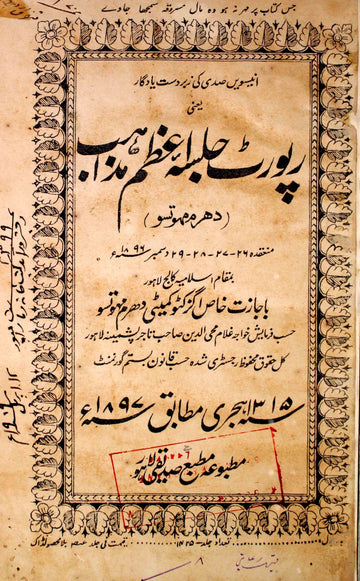 جس کتاب پر مہر نہ ہو وہ مال مسروقہ سمجھا جاوے
انیسویں صدی کی زبردست یادگار
یعنی
رپورٹ جلسۂ اعظم مذاہب
(دھرم مہوتسو)
منعقدہ ۲۶-۲۷-۲۸-۲۹ دسمبر ۱۸۹۶ء
بمقام اسلامیہ کالج لاہور
باجازت خاص اگزکٹو کمیٹی دھرم مہوتسو
حسب فرمایش خواجہ غلام محی الدین صاحب تاجر پشمینہ لاہور
کل حقوق محفوظ رجسٹری شدہ حسب قانون بستم گورنمنٹ
سنہ ۱۳۱۵ ہجری مطابق سنہ ۱۸۹۷ء
مطبوعہ مطبع صدیقی لاہور
تعداد جلد ۱۴۲۵
قیمت فی جلد عہ بلا محصولڈاک